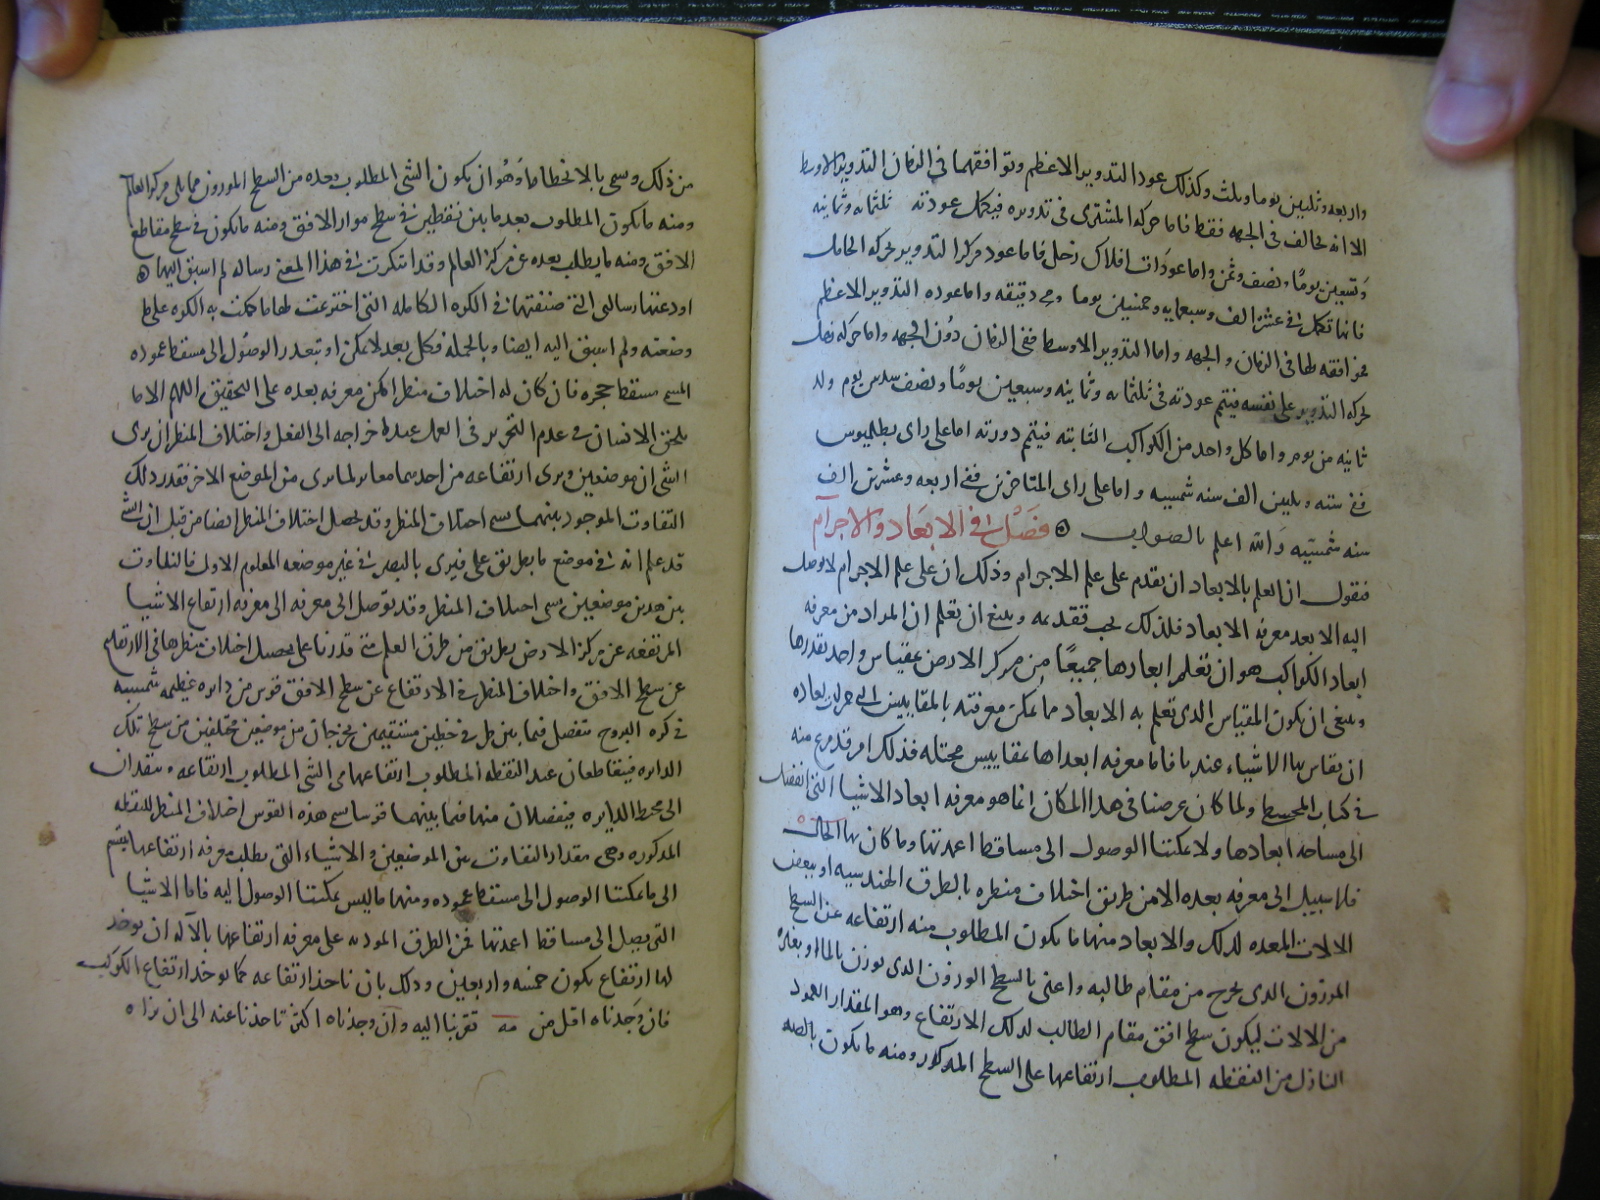 واربعه وثلثين يوما وثلث وكذلك عود التدوير الاعظم وتوافقهما في الزمان التدوير الاوسط
الا انه يخالف في الجهه فقط فاما حركه المشتري في تدويره فيكمل عودته ثلثمايه وثمانيه
وتسعين يوما ونصف وثمن واما عودات افلاك زحل فاما عود مركز التدوير لحركه الحامل
فانها تكمل في عشره الف وسبعمايه وخمسين يوما دقيقه واما عوده التدوير الاعظم
فموافقه لها في الزمان والجهه واما التدوير الاوسط ففي الزمان دون الجهه واما حركه زحل
لحركه التدوير على نفسه فيتم عودته في ثلثمايه وثمانيه وسبعين يوما ونصف سدس يوم
ثانيه من يوم واما كل واحد من الكواكب الثابته فيتم دورته اما على راى بطلميوس
ففي سته وثلثين الف سنه شمسيه واما على راى المتاخرين ففي اربعه وعشرين الف
سنه شمسيه والله اعلم بالصواب فصل في الابعاد والاجرام
فنقول ان العلم بالابعاد ان يقدم على علم الاجرام وذلك ان على علم الاجرام لا يوصل
اليه الا بعد معرفه الابعاد فلذلك يجب تقديمه وينبغي ان تعلم ان المراد من معرفه
ابعاد الكواكب هو ان تعلم ابعادها جميعا من مركز الارض بمقياس واحد يقدرها
وينبغي ان يكون المقياس الذي تعلم به الابعاد مما يمكن معرفته بالمقاييس
ان يقاس بها الاشياء عندنا فاما معرفه ابعدها بمقاييس محتله فذلك امر قد فرغ منه
في كتاب المجسطي ولما كان غرضنا في هذا المكان انما هو معرفه ابعاد الاشيا التي
الى مساحه ابعادها ولا يمكننا الوصول الى مساقط اعمدتها وما كان بها الحال
فلا سبيل الى معرفه بعده الا من طريق اختلاف منظره بالطرق الهندسيه او ببعض
الالات المعده لذلك والابعاد منها ما يكون المطلوب منه ارتفاعه عن السطح
الموزون الذي يخرج من مقام طالبه واعني بالسطح الموزون الذي يوزن بالماء او بغيره
من الالات ليكون سطح افق مقام الطالب لذلك الارتفاع وهو المقدار العمود
النازل من النقطه المطلوب ارتفاعها على السطح المذكور ومنه ما يكون بالضد
من ذلك وسمي بالانحطاط وهو ان يكون الشي المطلوب بعده من السطح الموزون مما يلي مركز العالم
ومنه ما يكون المطلوب بعد ما بين نقطتين في سطح مواز الافق ومنه ما يكون في سطح مقاطع
الافق ومنه ما يطلب بعده عن مركز العالم وقد ابتكرت في هذا المعنى رساله لم اسبق اليها
اودعتها رسالتي التي صنفتها في الكره الكامله التي اخترعت لها ما كملت به الكره على ما
وضعته ولم اسبق اليه ايضا وبالجمله فكل بعد لا يمكن او يتعذر الوصول الى مسقط عموده
المسمى مسقط حجره فان كان له اختلاف منظر امكن معرفه بعده على التحقيق اللهم الا ما
يلحق الانسان في عدم التحرير في العمل عند اخراجه الى الفعل واختلاف المنظر ان يرى
الشي من موضعين ويرى ارتفاعه من احدهما مغاير لما يرى من الموضع الاخر فقدر ذلك
التفاوت الموجود بينهما يسمى اختلاف المنظر وقد يحصل اختلاف المنظر ايضا من قبل ان الشي
قد علم انه في موضع ما بطريق علمي فيرى بالبصر في غير موضعه المعلوم الاول فالتفاوت
بين هذين موضعين يسمى اختلاف المنظر وقد توصل الى معرفه الى معرفه ارتفاع الاشيا
المرتفعه عن مركز الارض بطريق من طرق العلم متى قدرنا على تحصيل اختلاف منظرها في الارتفاع
عن سطح الافق واختلاف المنظر في الارتفاع عن سطح الافق قوس من دايره عظيمه شمسيه
في كره البروج تنفصل فيما بين طرفي خطين مستقيمين يخرجان من موضعين مختلفين من سطح تلك
الدايره فيتقاطعان عند النقطه المطلوب ارتفاعها من الشي المطلوب ارتفاعه وينفذان
الى محيط الدايره فيفصلان منها فيما بينهما قوسا يسمى هذه القوس اختلاف المنظر للنقطه
المذكوره وهي مقدار التفاوت بين الموضعين والاشياء التي يطلب معرفه ارتفاعها ينقسم
الى ما يمكننا الوصول الى مسقط عموده ومنها ما ليس يمكننا الوصول اليه فاما الاشيا
التي يصل الى مساقط اعمدتها فمن الطرق الموديه على معرفه ارتفاعها بالآله ان يوخذ
لها ارتفاع يكون خمسه واربعين وذلك بان ناخذ ارتفاعه كما يوخذ ارتفاع الكوكب
فان وجدناه اقل من مه تقربنا اليه وان وجدناه اكثر تاخذنا عنه الى ان نراه